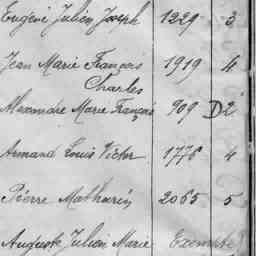 Eugène Julien Joseph 1229 3
Jean Marie François 1919 4
Charles
Alexandre Marie François 909 D2
Armand Louis Victor 1776 4
Pierre Mathurin 2065 5
Auguste Julien Marie Exempté